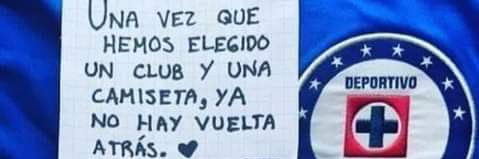 UNA VEZ QUE
HEMOS ELEGIDO
UN CLUB Y UNA
CAMISETA, YA
NO HAY VUELTA
ATRÁS. ♥
DEPORTIVO